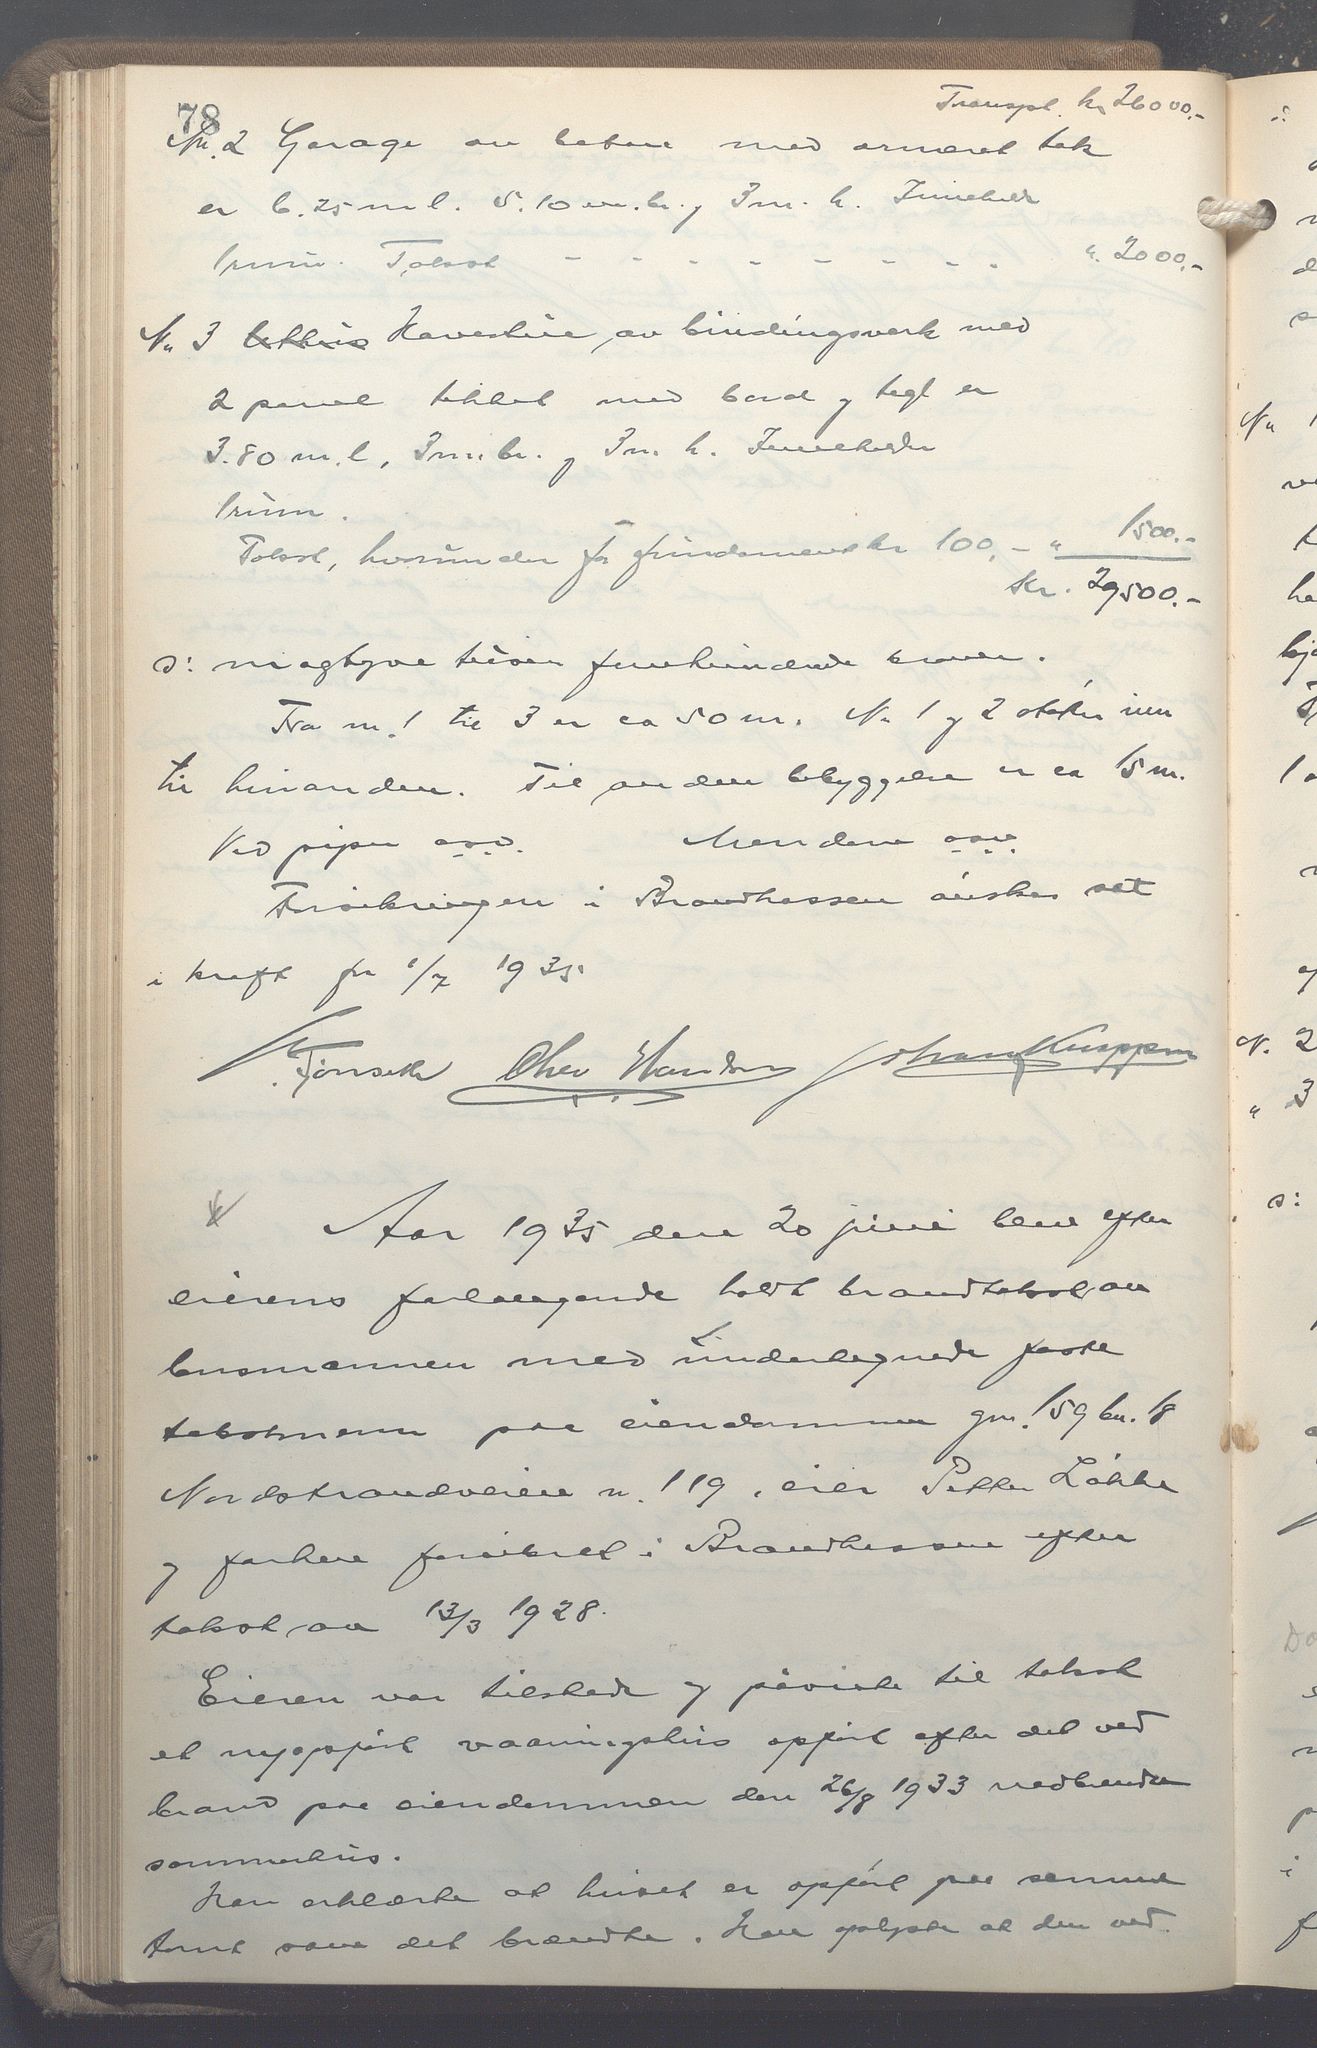 78
Transpt. kr 26000.-
Nr. 2 Garage av betong med armeret tak
er 6.25 m l. 5.10 m. br. og 3 m. h. Inneholder
1 rum. Takst - - - - - - - - " 2000.-
Nr 3 Havestue av bindingsverk med
2 panel tekket med bord og tegl er
3.80 m. l, 3 m. br. og 3 m. h. Inneholder
1 rum.
Takst, hvorunder for fundament kr 100,- " 1500.-
Kr. 29500.-
ɔ: niogtyve tusen femhundrede kroner.
Fra nr. 1 til 3 er ca 50 m. Nr 1 og 2 støter inn
til hinanden. Til anden bebyggelse er ca 15 m.
Ved piper osv. Mendene osv.
Forsikringen i Brandkassen ønskes sat
i kraft fra 1/7 1935.
Aar 1935 den 20 juni blev efter
eierens forlangende holdt brandtakst av
lensmannen med undertegnede faste
takstmenn paa eiendommen gnr. 159 bnr. 18
Nordstrandveien nr. 119, eier Petter Løkke
og forhen forsikret i Brandkassen efter
takst av 13/3 1928.
Eieren var tilstede og påviste til takst
et nyopført vaaningshus opført efter det ved
brand paa eiendommen den 26/8 1933 nedbrendte
sommerhus.
Han erklærte at huset er opført paa samme
tomt som det brændte. Han oplyste at den ved